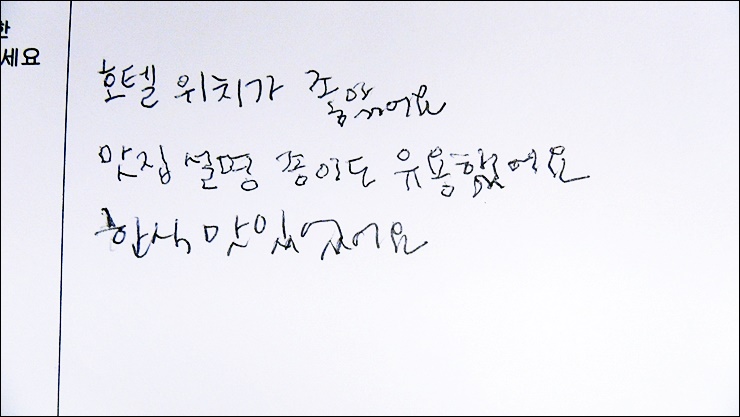 한
세요
호텔 위치가 좋았어요
맛집 설명 종이도 유용했어요
한식 맛있었어요